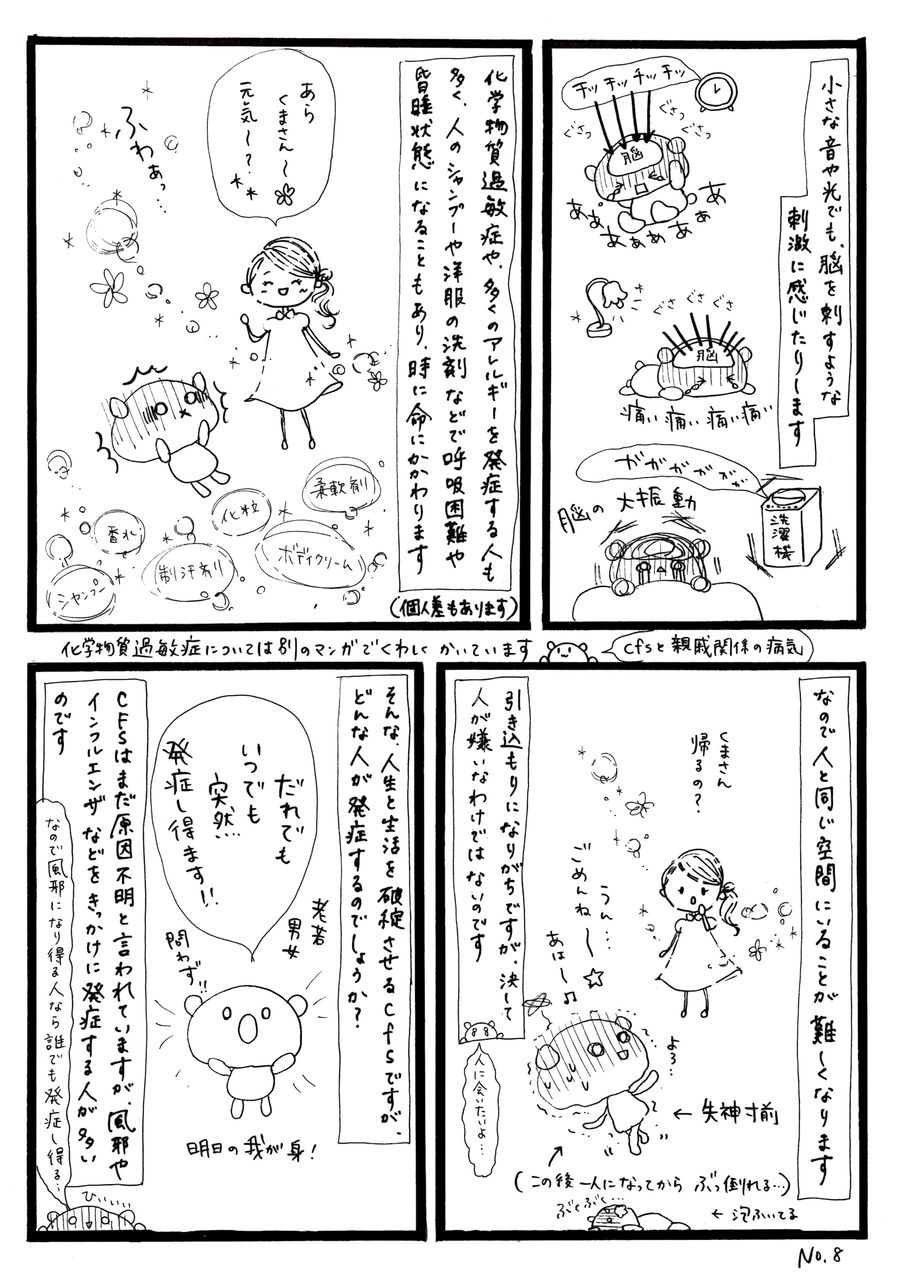 小さな音や光でも、脳を刺すような
刺激に感じたりします
チッチッチッチッ
ぐさっ
ぐさっ
ぐさっ
ぐさっ
脳
あぁあぁぁめあぁああ
ぐさぐさぐさ
脳
痛い痛い痛い痛い
ガガガガガガガ
洗濯機
脳の大振動
化学物質過敏症や、多くのアレルギーを発症する人も
多く、人のシャンプーや洋服の洗剤などで呼吸困難や
昏睡状態になることもあり、時に命にかかわります
(個人差もあります)
あら
くまさん〜
元気〜?
ふわぁっ…
柔軟剤
化粧
香水
ボディクリーム
制汗剤
シャンプー
化学物質過敏症については別のマンガでくわしくかいています
cfsと親戚関係の病気
なので人と同じ空間にいることが難しくなります
くまさん
帰るの?
うん…
ごめんね〜☆
あは〜♪
よろ…
←失神寸前
(この後一人になってからぶっ倒れる…)
ぶくぶく…
←泡ふいてる
引き込もりになりがちですが、決して
人が嫌いなわけではないのです
人に会いたいよ…
そんな、人生と生活を破綻させるCfSですが、
どんな人が発症するのでしょうか?
だれでも
いつでも
突然
発症し得ます!!
老若
男女
問わず!!
明日の我が身!
CFSはまだ原因不明と言われていますが、風邪や
インフルエンザなどをきっかけに発症する人が多い
のです
なので風邪になり得る人なら誰でも発症し得る…
ひぃぃぃぃ
No.8